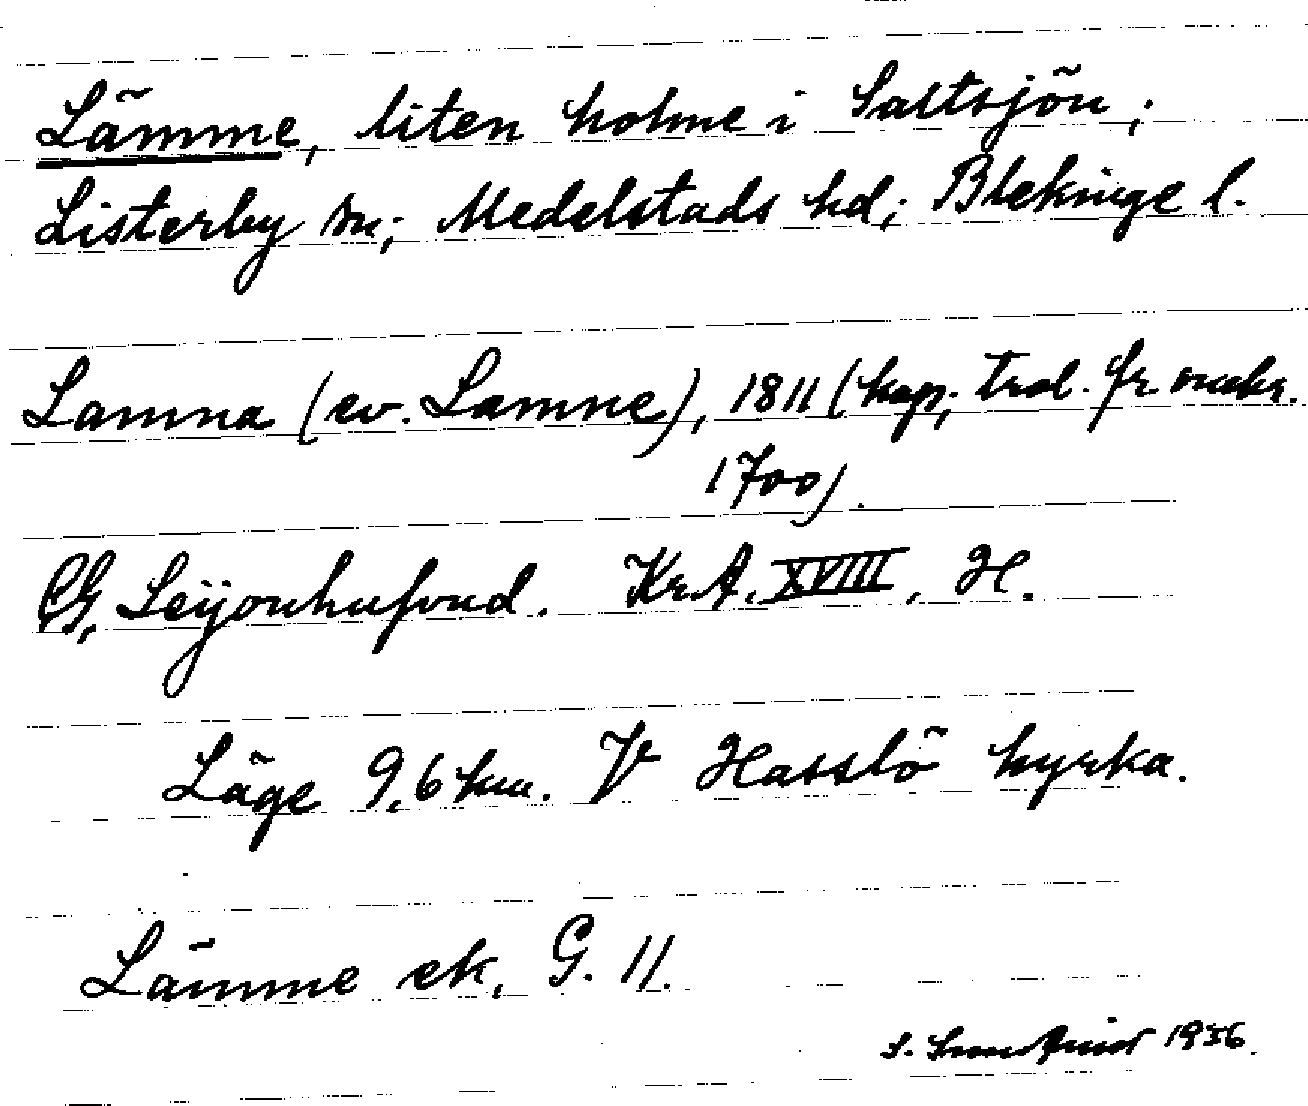 Lämme, liten holme i Saltsjön;
Listerby sn; Medelstads hd; Blekinge l.
Lamna (ev. Lamne), 1811 (kop, trol. fr omkr.
1700).
CG, Leijonhufvud. Kr.A. XVIII, H.
Läge 9,6 km. V Hasslö kyrka.
Lämme ek, G. 11.
S. 1956.